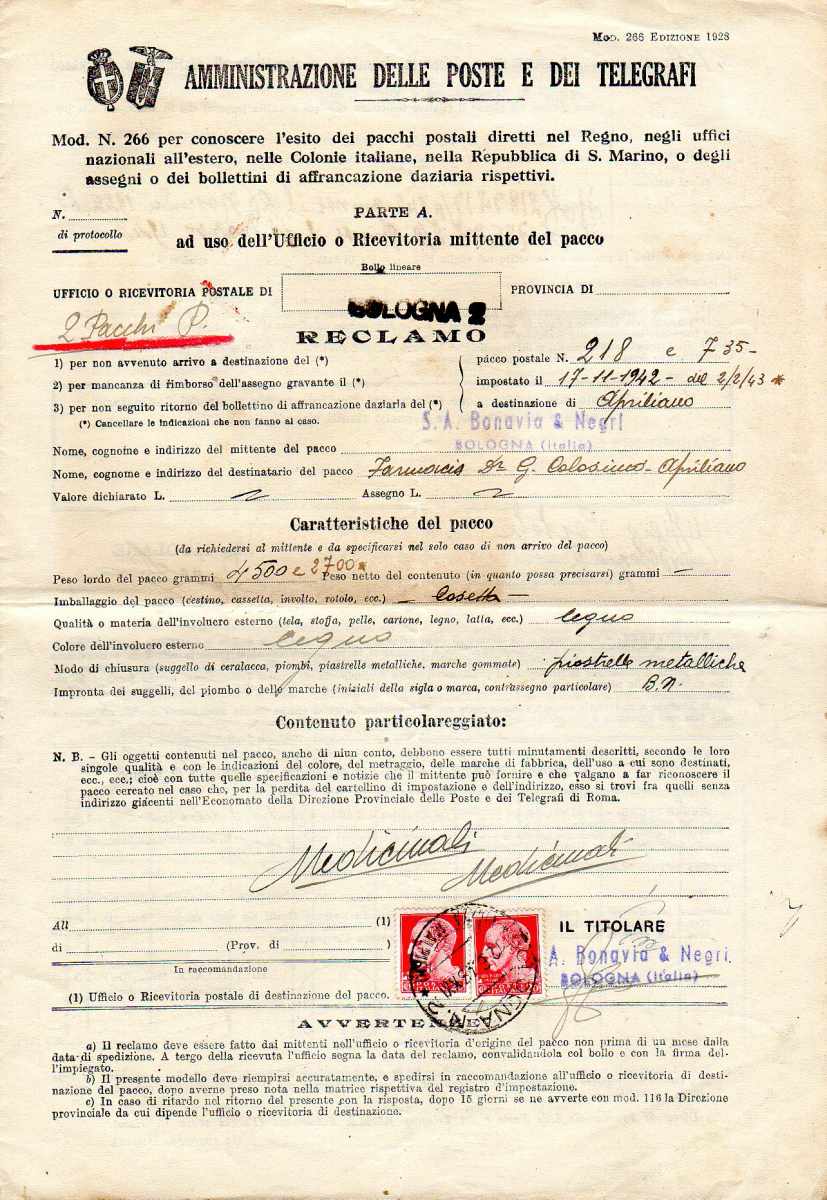 Mod. 266 Edizione 1928
AMMINISTRAZIONE DELLE POSTE E DEI TELEGRAFI
Mod. N. 266 per conoscere l'esito dei pacchi postali diretti nel Regno, negli uffici
nazionali all'estero, nelle Colonie italiane, nella Repubblica di S. Marino, o degli
assegni o dei bollettini di affrancazione daziaria rispettivi.
N.
di protocollo
PARTE A.
ad uso dell'Ufficio o Ricevitoria mittente del pacco
Bollo lineare
UFFICIO O RICEVITORIA POSTALE DI
PROVINCIA DI
BOLOGNA 2
2 Pacchi P.
RECLAMO
1) per non avvenuto arrivo a destinazione del (*)
2) per mancanza di rimborso dell'assegno gravante il (*)
3) per non seguito ritorno del bollettino di affrancazione daziaria del (*)
(*) Cancellare le indicazioni che non fanno al caso.
pacco postale N. 218 e 735-
impostato il 17-11-1942- del 2/2/43 *
a destinazione di Apriliano
S.A. Bonavia & Negri
BOLOGNA (Italia)
Nome, cognome e indirizzo del mittente del pacco
Nome, cognome e indirizzo del destinatario del pacco Farmacia Dr G. Colosimo - Apriliano
Valore dichiarato L. Assegno L.
Caratteristiche del pacco
(da richiedersi al mittente e da specificarsi nel solo caso di non arrivo del pacco)
Peso lordo del pacco grammi 4500 e 2700 * Peso netto del contenuto (in quanto possa precisarsi) grammi —
Imballaggio del pacco (cestino, cassetta, involto, rotolo, ecc.) — Casetta —
Qualità o materia dell'involucro esterno (tela, stoffa, pelle, cartone, legno, latta, ecc.) legno
Colore dell'involucro esterno legno
Modo di chiusura (suggello di ceralacca, piombi, piastrelle metalliche, marche gommate) piastrelle metalliche
Impronta dei suggelli, del piombo o delle marche (iniziali della sigla o marca, contrassegno particolare) B.N.
Contenuto particolareggiato:
N. B. - Gli oggetti contenuti nel pacco, anche di niun conto, debbono essere tutti minutamenti descritti, secondo le loro
singole qualità e con le indicazioni del colore, del metraggio, delle marche di fabbrica, dell'uso a cui sono destinati,
ecc., ecc.; cioè con tutte quelle specificazioni e notizie che il mittente può fornire e che valgano a far riconoscere il
pacco cercato nel caso che, per la perdita del cartellino di impostazione e dell'indirizzo, esso si trovi fra quelli senza
indirizzo giacenti nell'Economato della Direzione Provinciale delle Poste e dei Telegrafi di Roma.
Medicinali
Medicinali
All (1)
di (Prov. di )
In raccomandazione
(1) Ufficio o Ricevitoria postale di destinazione del pacco.
IL TITOLARE
A. Bonavia & Negri
BOLOGNA (Italia)
AVVERTENZE
a) Il reclamo deve essere fatto dai mittenti nell'ufficio o ricevitoria d'origine del pacco non prima di un mese dalla
data di spedizione. A tergo della ricevuta l'ufficio segna la data del reclamo, convalidandola col bollo e con la firma del-
l'impiegato.
b) Il presente modello deve riempirsi accuratamente, e spedirsi in raccomandazione all'ufficio o ricevitoria di desti-
nazione del pacco, dopo averne preso nota nella matrice rispettiva del registro d'impostazione.
c) In caso di ritardo nel ritorno del presente con la risposta, dopo 15 giorni se ne avverte con mod. 116 la Direzione
provinciale da cui dipende l'ufficio o ricevitoria di destinazione.